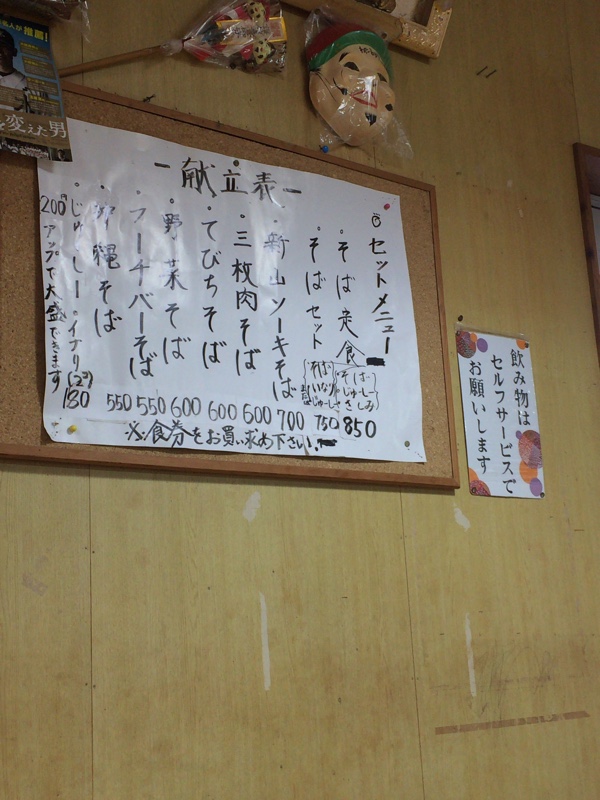 を変えた男
ー献立表ー
セットメニュー
・そば定食
(そば じゅーしー さしみ)
850
・そばセット
(そば いなり じゅーしー)
750
・新山ソーキそば
700
・三枚肉そば
600
・てびちそば
600
・野菜そば
600
・フーチバーそば
550
・沖縄そば
550
・じゅーしー・イナリ(2コ)
180
200円アップで大盛できます
※食券をお買い求め下さい
飲み物は
セルフサービスで
お願いします